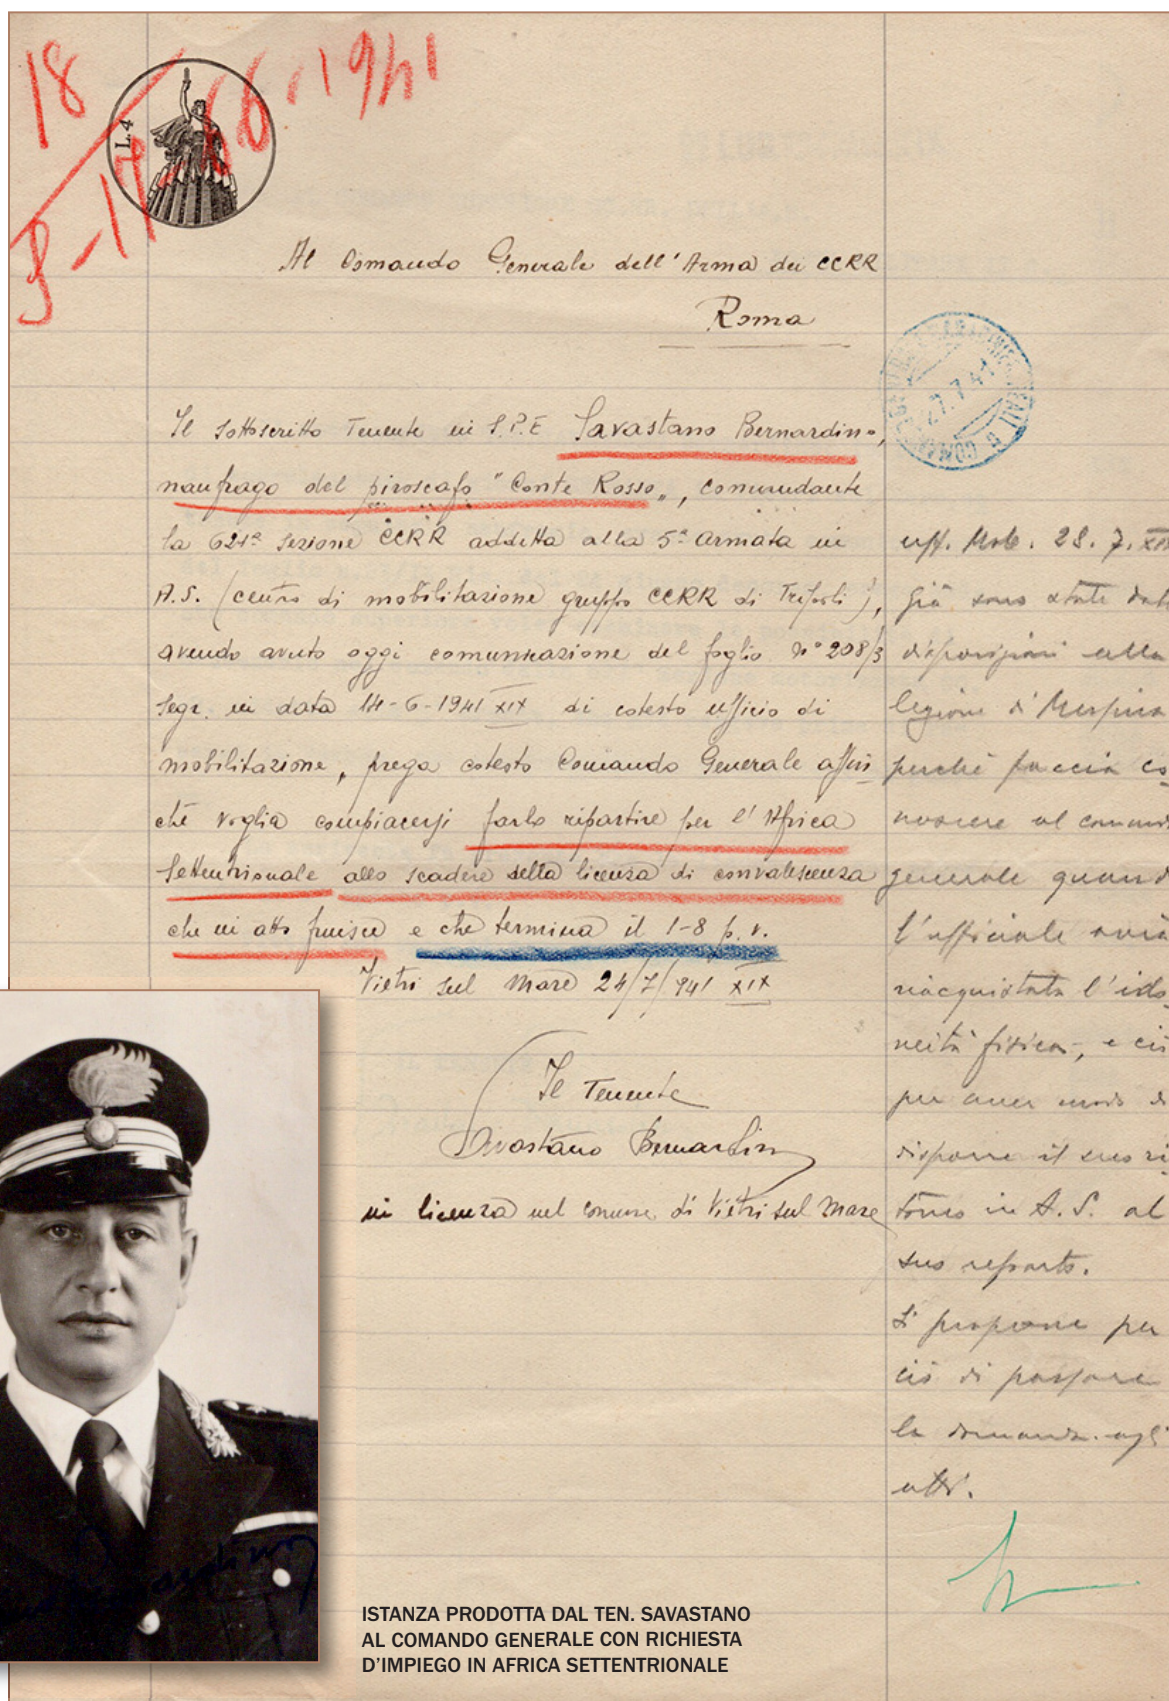 18
L.4
6.1941
Al Comando Generale dell'Arma dei CCRR
Roma
27.7.41
Il sottoscritto Tenente in S.P.E Savastano Bernardino,
naufrago del piroscafo "Conte Rosso", comandante
la 621ª Sezione CCRR addetta alla 5ª Armata in
A.S. (centro di mobilitazione gruppo CCRR di Tripoli),
avendo avuto oggi comunicazione del foglio n° 208/3
Segr. in data 14-6-1941 XIX di cotesto ufficio di
mobilitazione, prega cotesto Comando Generale affin
chè voglia compiacersi farlo ripartire per l'Africa
Settentrionale allo scadere della licenza di convalescenza
che in atto fruisce e che termina il 1-8 p.v.
Vietri sul Mare 24/7/941 XIX
Il Tenente
Savastano Bernardino
in licenza nel comune di Vietri sul Mare
uff. Mob. 28.7.XIX
Già sono state dat
disposizioni alla
legione di Messina
perchè faccia co-
noscere al comand
generale quand
l'ufficiale avrà
riacquistata l'ido-
neità fisica, e ciò
per aver modo di
disporre il suo ri-
torno in A.S. al
suo reparto.
Si propone per
ciò di passare
la domanda agli
atti.
ISTANZA PRODOTTA DAL TEN. SAVASTANO
AL COMANDO GENERALE CON RICHIESTA
D'IMPIEGO IN AFRICA SETTENTRIONALE